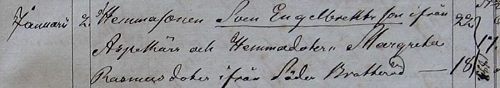 Januari 2. Hemmasonen Sven Engelbrektsson ifrån 22
Aspelkärr och Hemmadoter Margreta 17
Rasmusdoter ifrån Söder Bratteröd — 18